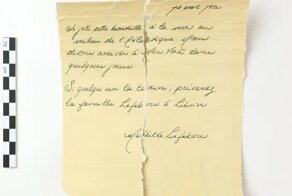 13 avril 1912
Je jette cette bouteille à la mer au
milieu de l'Atlantique. Nous
devons arriver à New York dans
quelques jours.
Si quelqu'un la trouve, prévenez
la famille Lefebvre à Liévin.
Mathilde Lefebvre